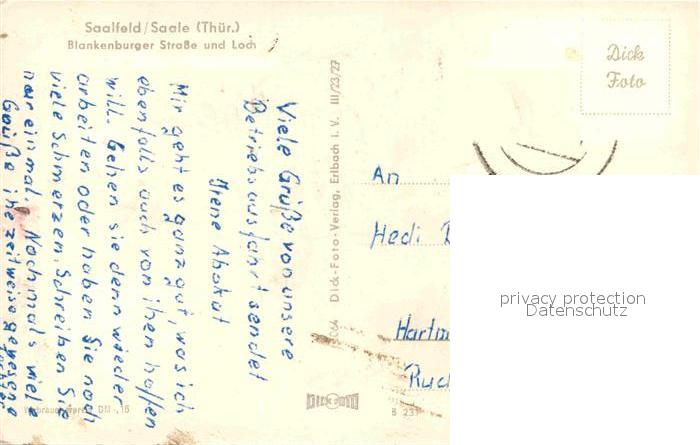 Saalfeld/Saale (Thür.)
Blankenburger Straße und Loch
Dick
Foto
Viele Grüße von unsere
Betriebsausfahrt sendet
Irene Abokat
Mir geht es ganz gut, was ich
ebenfalls auch von ihen hoffen
will. Gehen sie denn wieder
arbeiten oder haben Sie noch
viele Schmerzen. Schreiben Sie
nur einmal. Nochmals viele
Grüße ihre zeitweise gewesene
Tochter
Dick-Foto-Verlag, Erlbach i. V. III/23/27
An
Hedi
Hartm
Rud
privacy protection
Datenschutz
DICK FOTO
B 231
Verbraucherpreis DM -,18